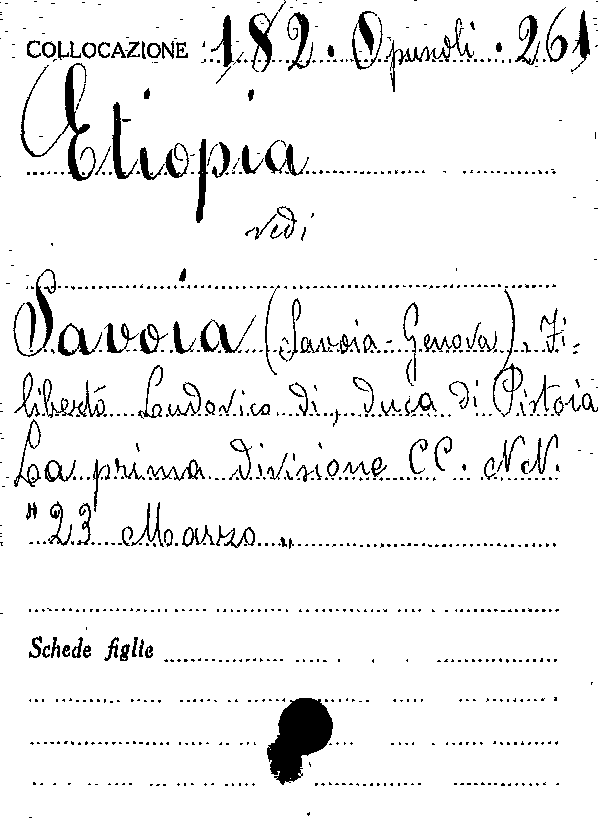 COLLOCAZIONE 182. Opuscoli. 261
Etiopia
vedi
Savoia (Savoia-Genova), Fi-
liberto Ludovico di, duca di Pistoia
La prima divisione CC. NN.
"23 Marzo"
Schede figlie